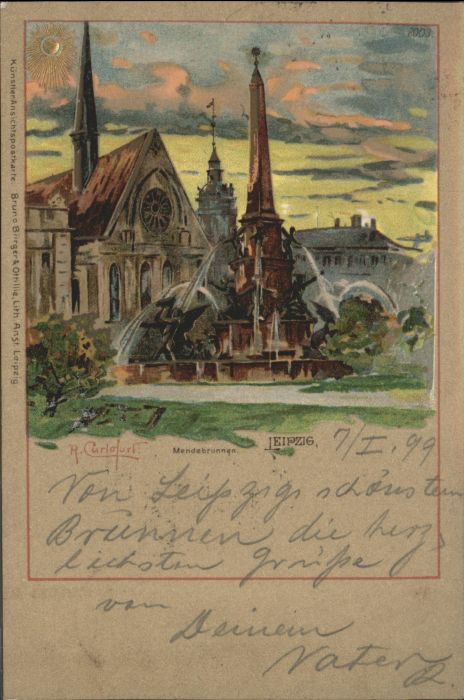 7003
KünstlerAnsichtspostkarte. Bruno Bürger & Ottillie, Lith. Anst. Leipzig.
Mendebrunnen.
LEIPZIG,
7/I. 99
Von Leipzigs schönstem
Brunnen die herz-
lichsten Grüße
von
Deinem
Vater